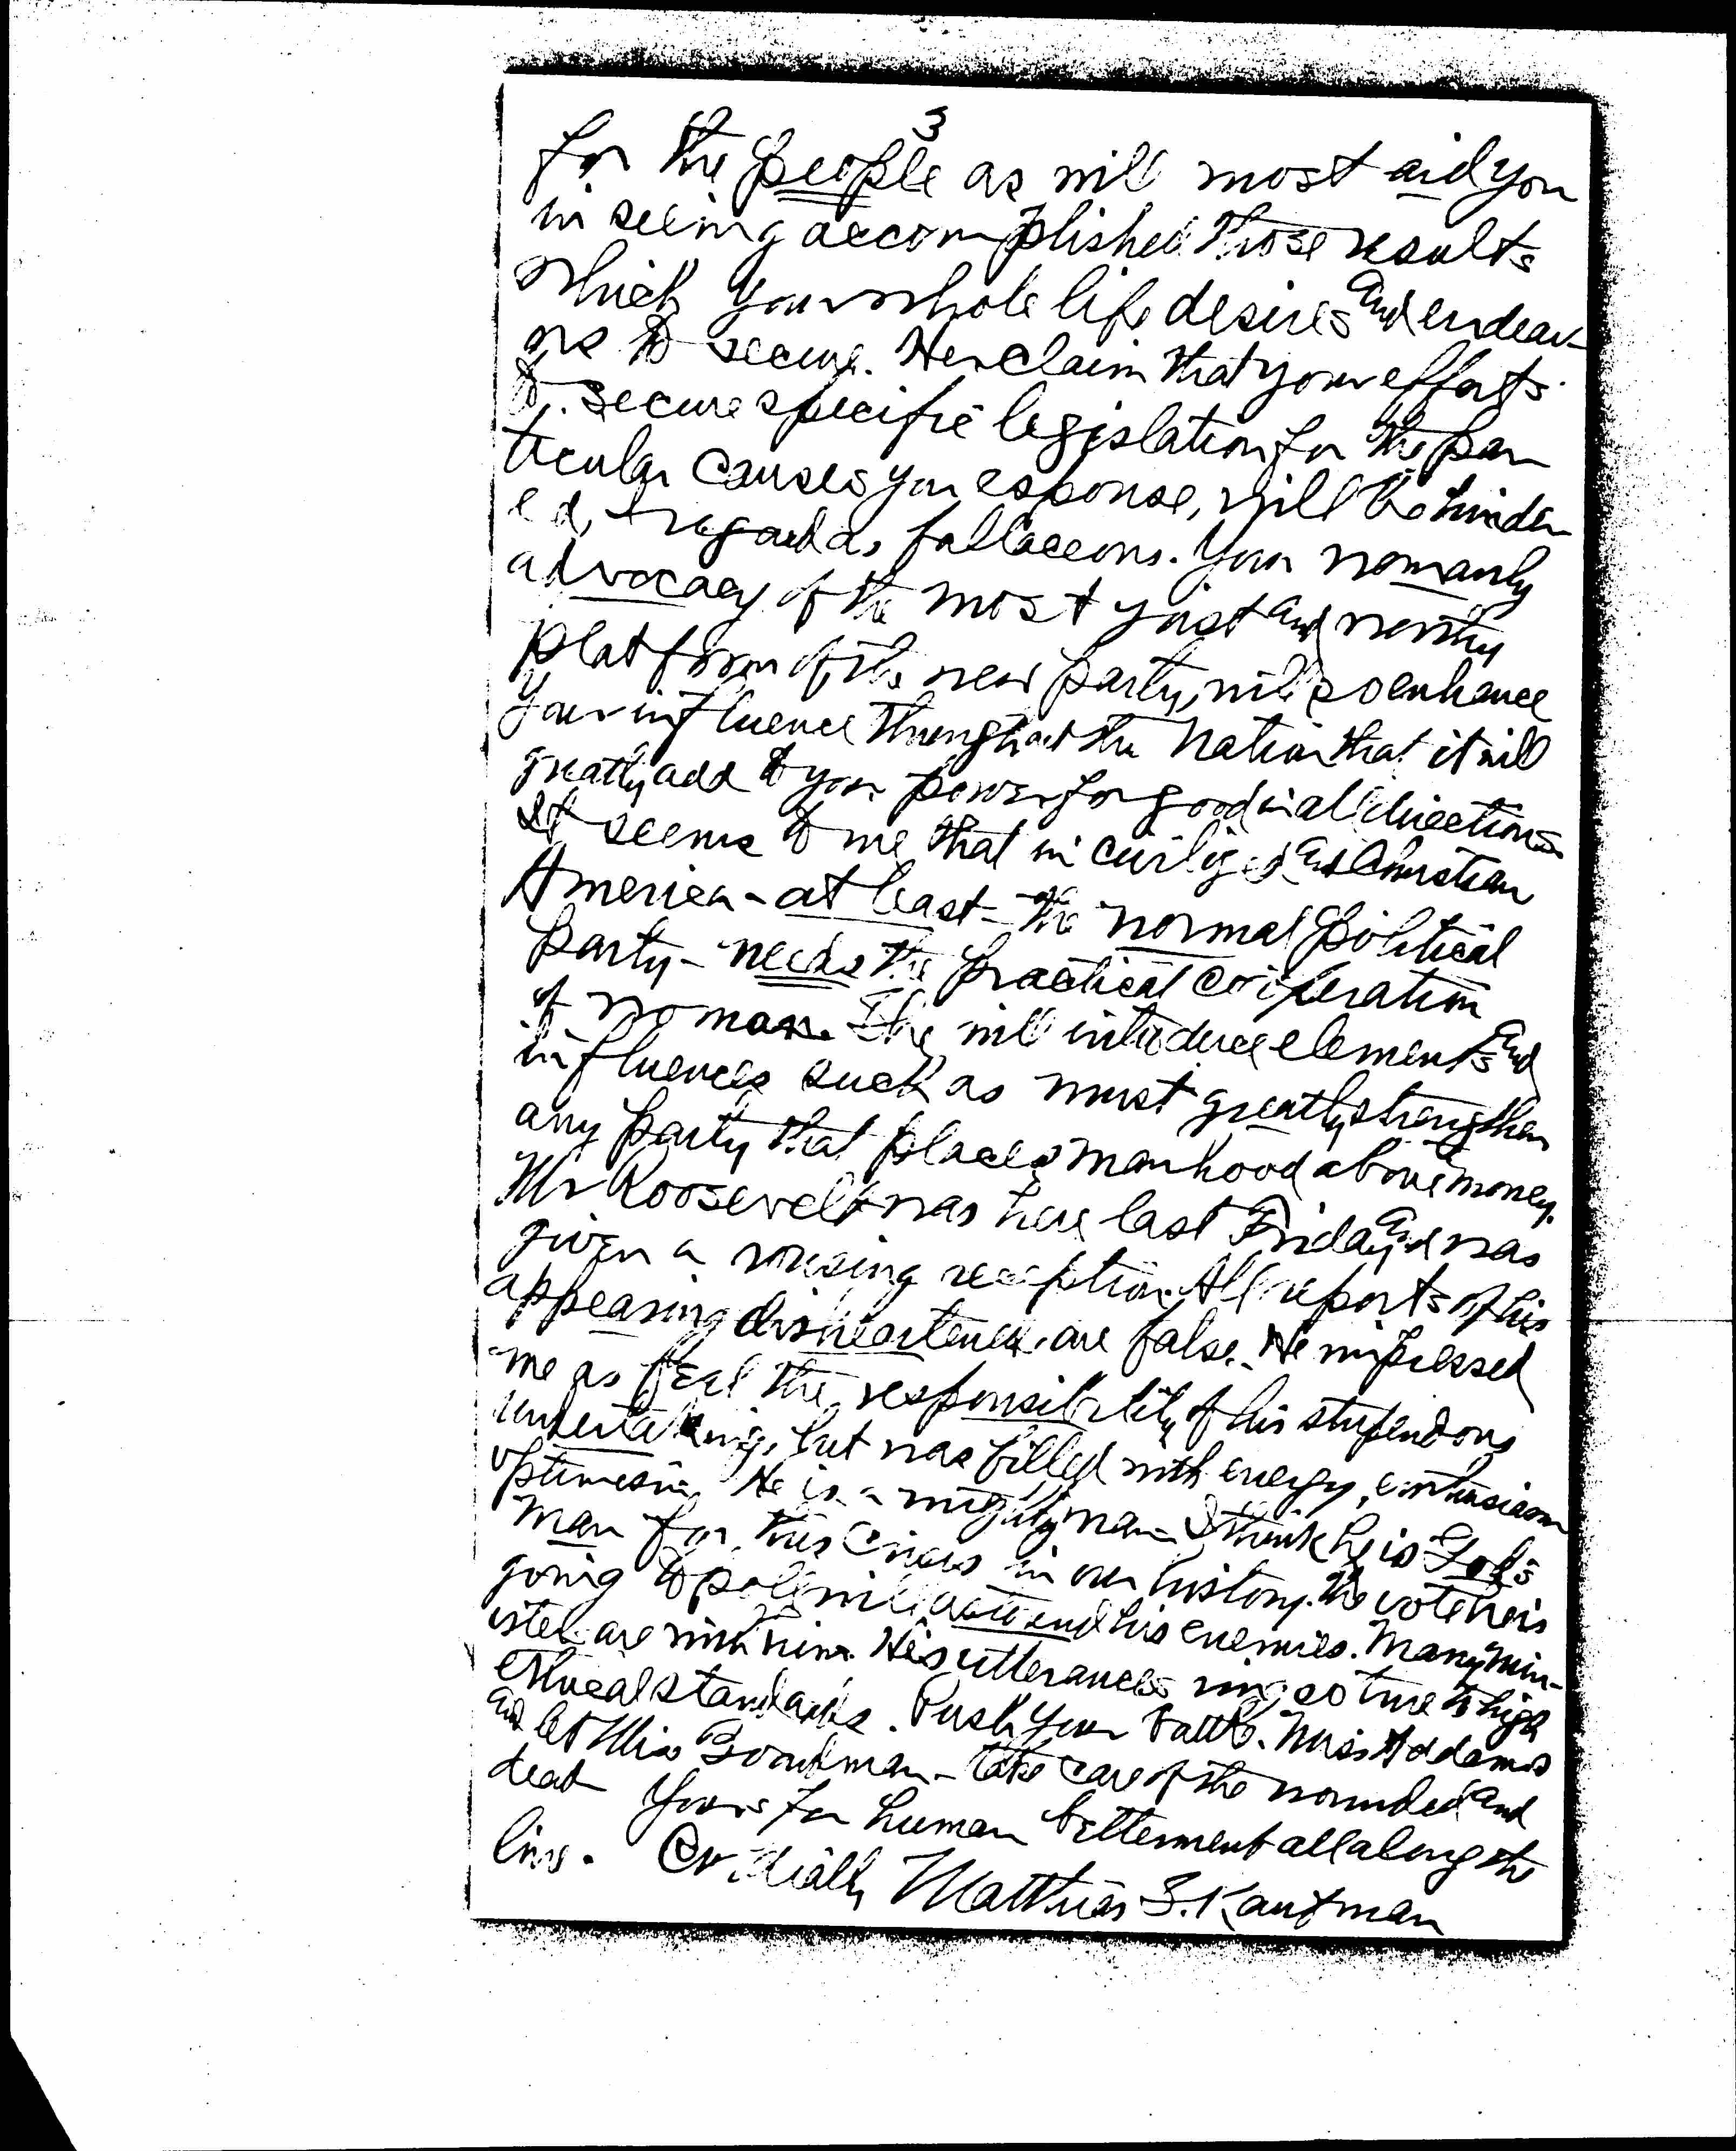 3
for the people as will most aid you
in seeing accomplished those results
which your whole life desires and endeav-
ors to secure. Her claim that your efforts
to secure specific legislation for the par
ticular causes you espouse, will be hinder
ed, I regard as fallaceous. Your womanly
advocacy of the most just and worthy
platform of the new party, will so enhance
your influence throughout the Nation that it will
greatly add to your power for good in all directions
It seems to me that in civilized and Christian
America - at least - the normal political
party - needs the practical coöperation
of woman. She will introduce elements and
influences such as must greatly strengthen
any party that places manhood above money.
Mr Roosevelt was here last Friday and was
given a rousing reception. All reports of his
appearing disheartened are false. He impressed
me as feel the responsibility of his stupendous
undertaking, but was filled with energy, enthusiasm
optimism. He is a mighty man - I think he is God's
man for this crisis in our history. The vote he is
going to poll will astound his enemies. Many min-
isters are with him. His utterances ring so true to high
ethical standards. Push your battle. Miss Addams
and let Miss Boardman - take care of the wounded and
dead Yours for human betterment all along the
line. Cordially Matthias S. Kaufman